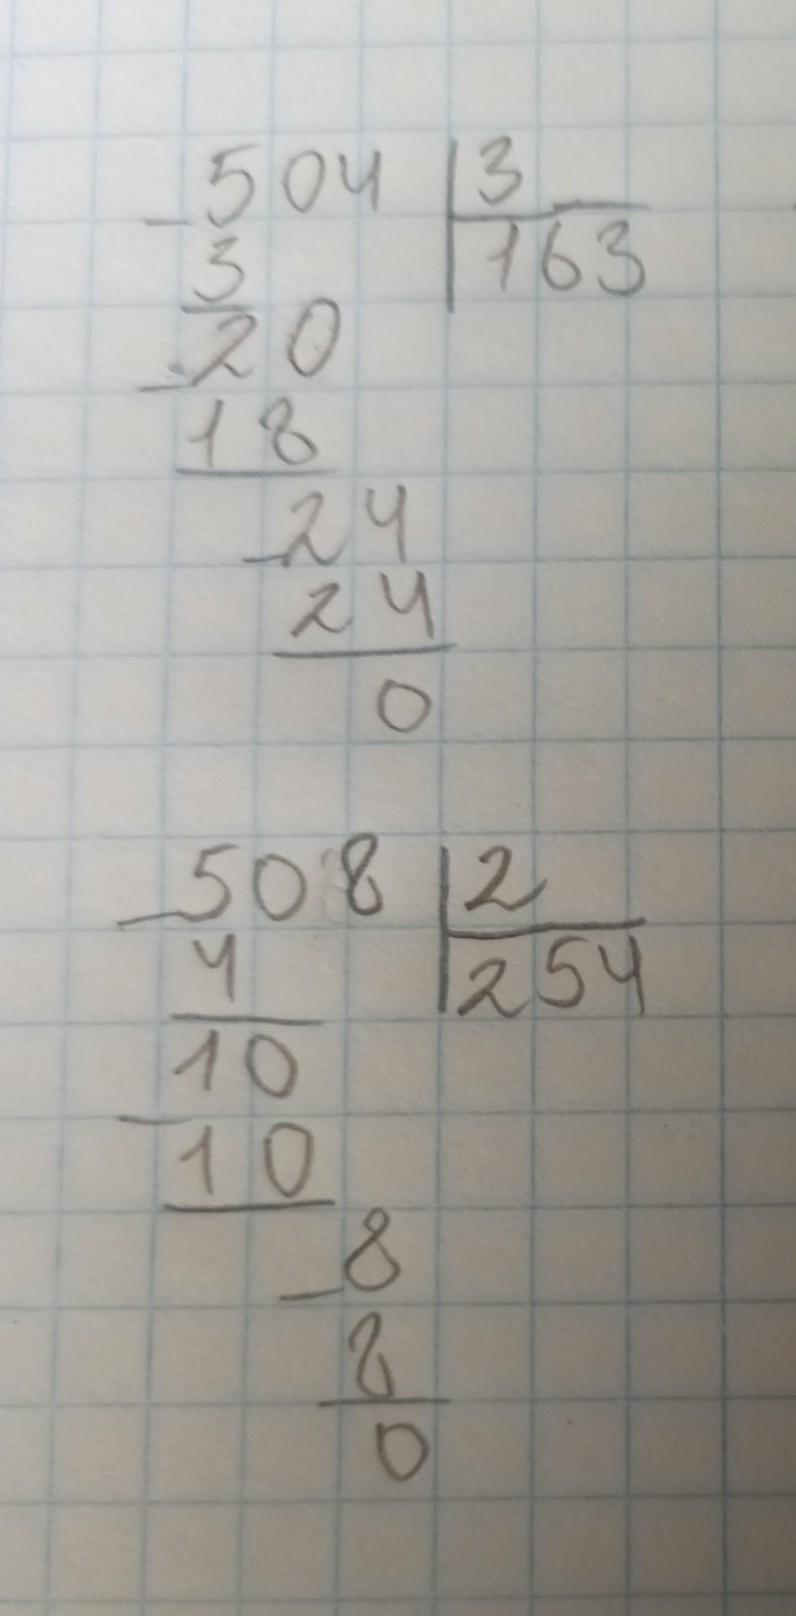 504 | 3
3 | 163
20
18
24
24
0
508 | 2
4 | 254
10
10
8
8
0